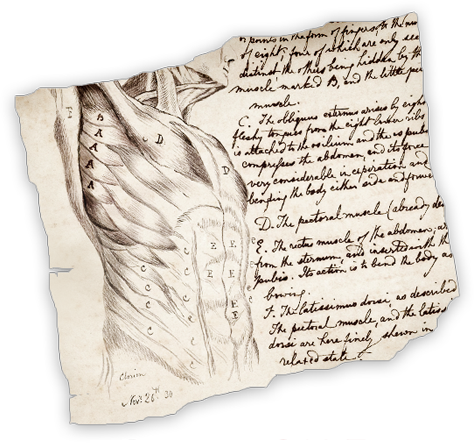 or points in the form of fingers to the num
of eight: four of which are only see
distinct the others being hidden by the
muscle marked B, and the little pec
muscle.
C. The obliquus externus arises by eight
fleshy tongues from the eight lower ribs
is attached to the os ileum and the os pubis
compresses the abdomen and its force
very considerable in expiration and
bending the body either side and forwa
D. The pectoral muscle (already des
E. The rectus muscle of the abdomen: ar
from the sternum, and inserted into the
pubis. Its action is to bend the body as
bowing.
F. The latissimus dorsi, as described
The pectoral muscle, and the latiss
dorsi are here finely shewn in
relaxed state.
B
A
A
A
A
D
D
E E
E E
E
E
C
C
C
C
C
C
C
Nov. 26th 30